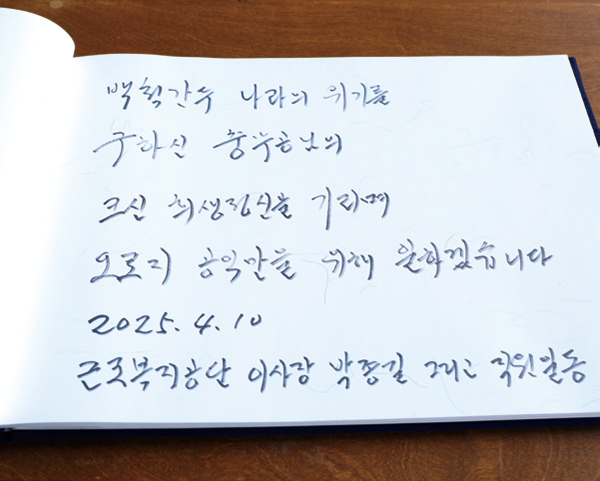 백척간두 나라의 위기를
구하신 충무공님의
크신 희생정신을 기리며
오로지 공익만을 위해 일하겠습니다
2025. 4. 10
근로복지공단 이사장 박종길 그리고 직원일동